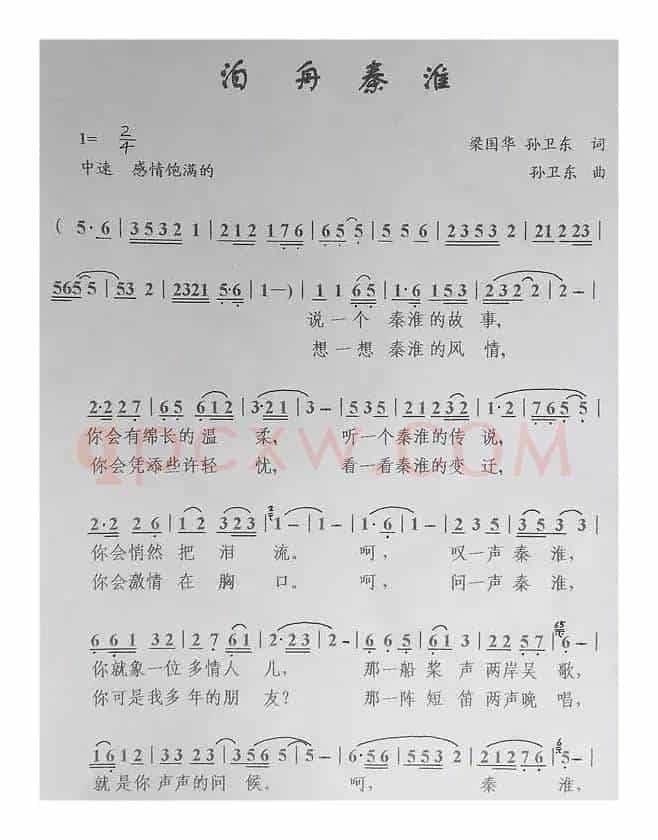 泊舟秦淮
1= 2/4
梁国华 孙卫东 词
中速 感情饱满的
孙卫东 曲
( 5·6 | 3532 1 | 212 176 | 655 | 556 | 2353 2 | 212 23 |
5655 | 53 2 | 2321 5·6 | 1—) | 1 1 65 | 1·6 153 | 232 2 | 2— |
说一个 秦淮的故 事,
想一想 秦淮的风 情,
2·227 | 65 612 | 3·21 | 3— | 535 | 21232 | 1·2 | 7655 |
你会有绵长的温 柔, 听一个秦淮的传说,
你会凭添些许轻 忧, 看一看秦淮的变迁,
qpcxw.com
2·2 26 | 1 2 323 | 2 1— | 1— | 1·6 | 1— | 235 | 353 3 |
你会悄然把 泪 流。 呵, 叹一声 秦 淮,
你会激情在 胸 口。 呵, 问一声 秦 淮,
661 32 | 27 61 | 2·23 | 2— | 665 | 613 | 22 57 | 65 6— |
你就象一位多情人 儿, 那一船 桨 声 两岸吴 歌,
你可是我多年的朋 友? 那一阵 短 笛 两声晚 唱,
1612 | 3323 | 3565 | 5— | 6·56 | 5535 | 21276 | 6 5— |
就是你声声的问 候。 呵, 秦 淮,